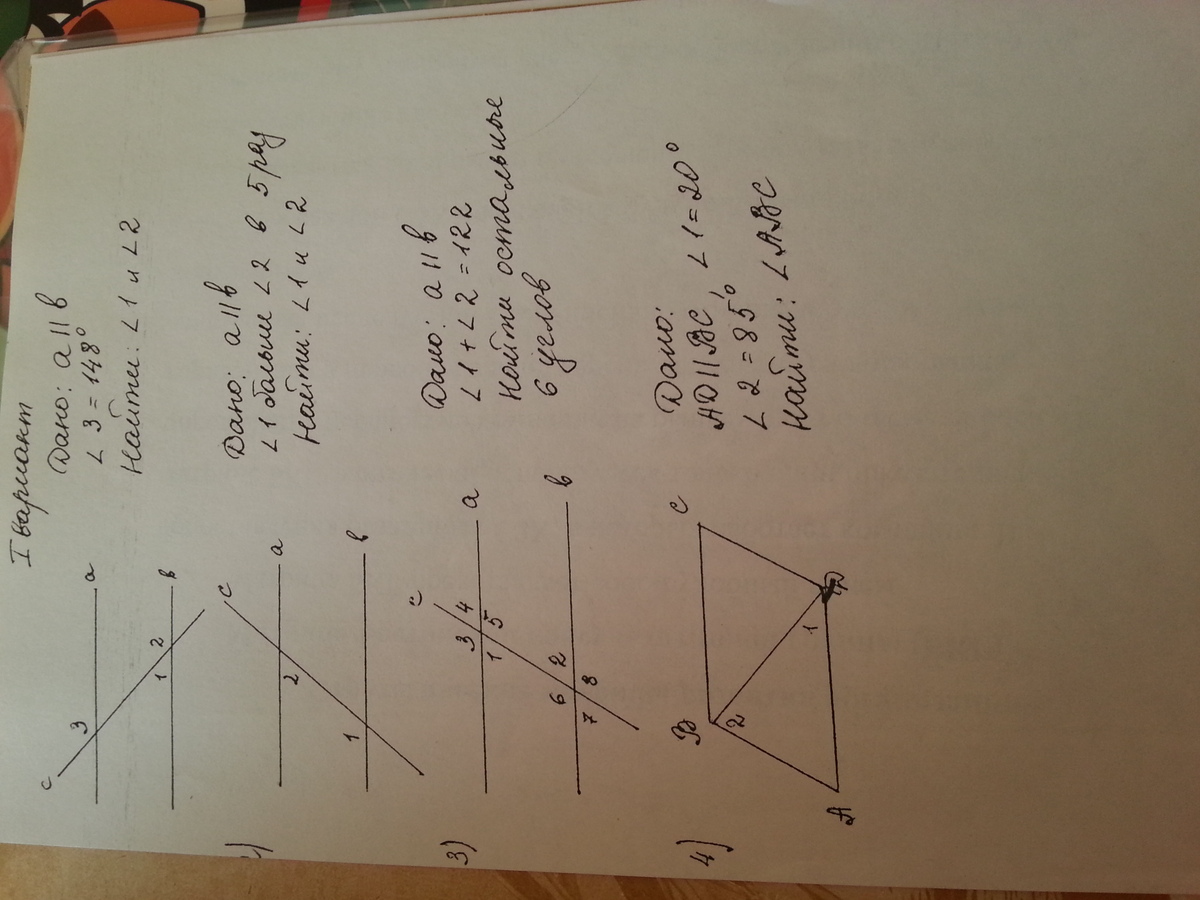 I вариант
c
3
a
1 2
в
Дано: a || в
∠3 = 148°
Найти: ∠1 и ∠2
c
2
a
1
в
Дано: a || в
∠1 больше ∠2 в 5 раз
Найти: ∠1 и ∠2
3)
c
3 4
a
1 5
6 2
в
7 8
Дано: a || в
∠1 + ∠2 = 122
Найти остальные
6 углов
4)
B
C
2
1
A
D
Дано:
AD || BC, ∠1 = 20°
∠2 = 85°
Найти: ∠ABC